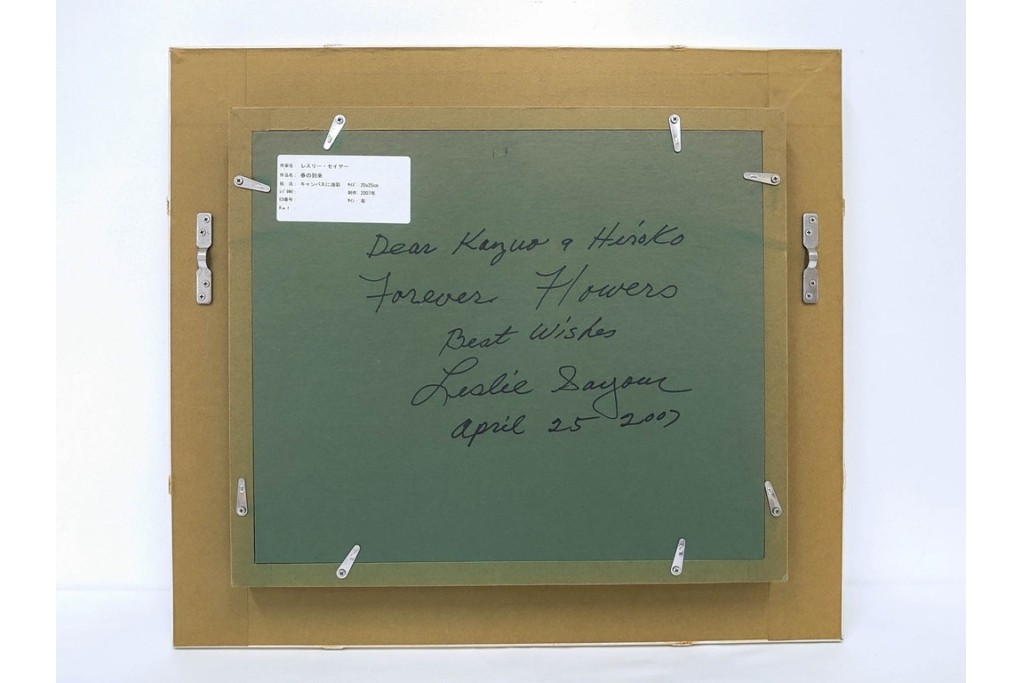 作家名： レスリー・セイヤー
作品名： 春の到来
技　法： キャンバスに油彩 ｻｲｽﾞ：20x25cm
制作：2007年
ED番号： ｻｲﾝ：有
Dear Kazuo & Hiroko
Forever Flowers
Best Wishes
Leslie Sayour
April 25 2007